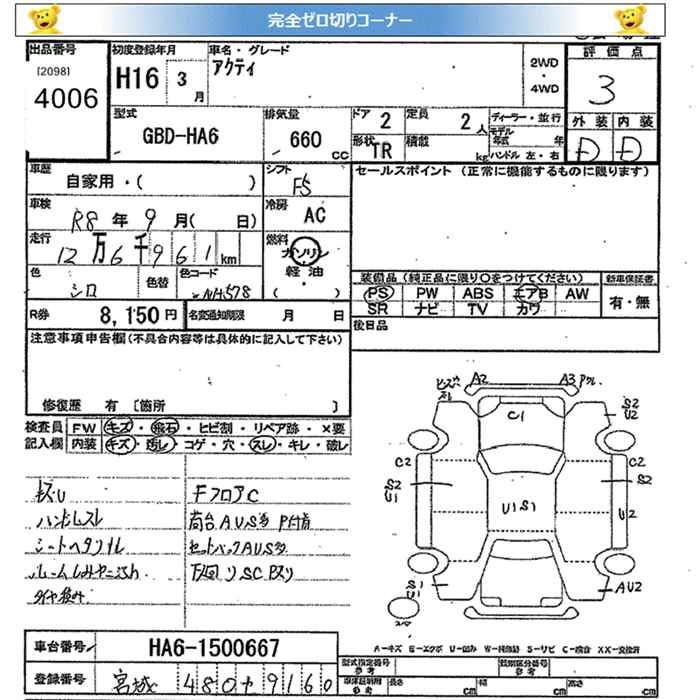 完全ゼロ切りコーナー
出品番号 初度登録年月 車名・グレード 評価点
[2098] H16 3月 アクティ 2WD・4WD 3
4006
型式 排気量 ドア 定員 ディーラー・並行 外装 内装
GBD-HA6 660cc 2 2人 モデル年式 年 D D
形状 TR 積載 kg ハンドル 左・右
車歴 シフト セールスポイント (正常に機能するものに限ります)
自家用・( ) F5
車検 冷房
R8年9月( 日) AC
走行 燃料
12万6千961km ガソリン
軽油
( )
色 色替 色コード 装備品 (純正品に限り〇をつけてください) 新車保証書
シロ NH578 PS PW ABS エアB AW 有・無
SR ナビ TV カワ
R券 8,150円 名変通知期限 月 日 後日品
注意事項申告欄(不具合内容等は具体的に記入して下さい)
修復歴 有 〔箇所 〕
検査員 FW キズ・飛石・ヒビ割・リペア跡・×要
記入欄 内装 キズ・汚し・コゲ・穴・スレ・キレ・破レ
A2 A3
C1
S2
U2
C2 C2
S2 S2
U1
U1S1
U2
S1
U1
AU2
FフロアC
ハンドルスレ 荷台AUS多
シートヘタリ セットバックAUS多
車台番号 HA6-1500667
A-キズ E-エクボ U-凹み W-補修跡 S-サビ C-腐食 XX-交換済
登録番号 宮城 480 ヤ 9160
型式指定番号 参考 類別区分番号 参考
長さ cm 幅 cm 高さ cm